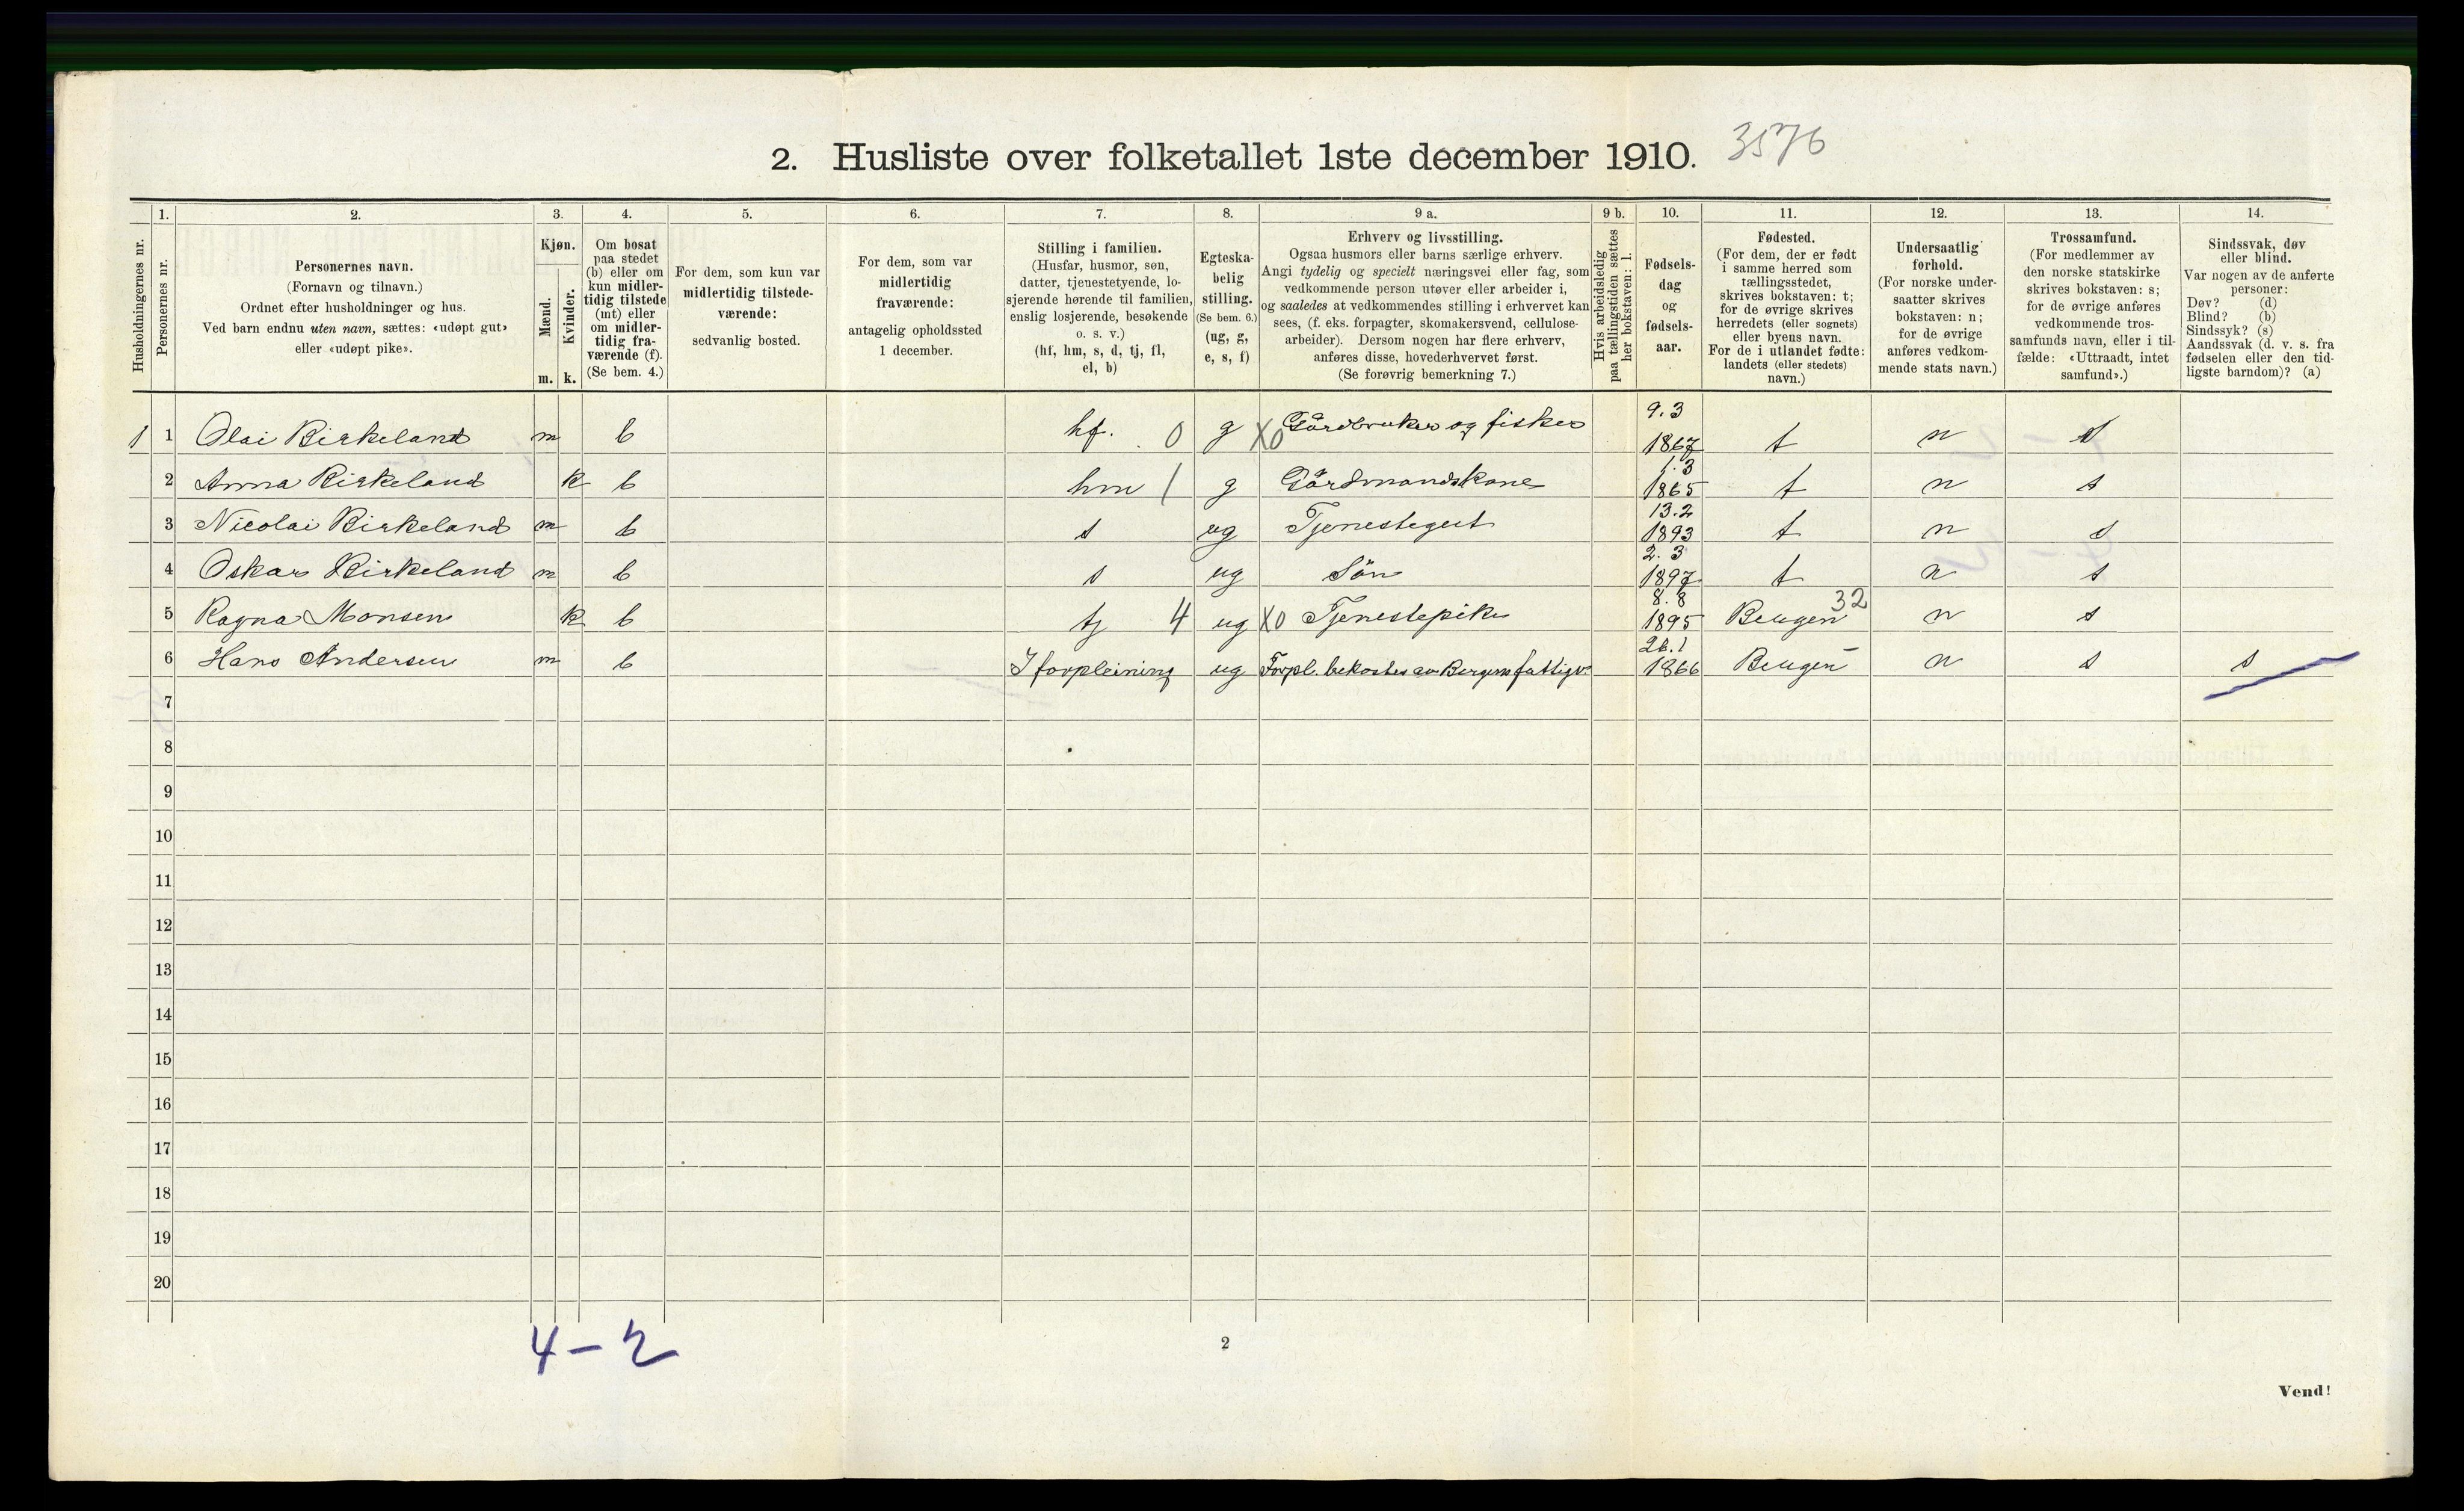 2. Husliste over folketallet 1ste december 1910. 3576
Husholdningernes nr.
1. Personernes nr.
2. Personernes navn.
(Fornavn og tilnavn.)
Ordnet efter husholdninger og hus.
Ved barn endnu uten navn, sættes: «udøpt gut»
eller «udøpt pike».
3. Kjøn.
Mænd. m.
Kvinder. k.
4. Om bosat
paa stedet
(b) eller om
kun midler-
tidig tilstede
(mt) eller
om midler-
tidig fra-
værende (f).
(Se bem. 4.)
5. For dem, som kun var
midlertidig tilstede-
værende:
sedvanlig bosted.
6. For dem, som var
midlertidig
fraværende:
antagelig opholdssted
1 december.
7. Stilling i familien.
(Husfar, husmor, søn,
datter, tjenestetyende, lo-
sjerende hørende til familien,
enslig losjerende, besøkende
o. s. v.)
(hf, hm, s, d, tj, fl,
el, b)
8. Egteska-
belig
stilling.
(Se bem. 6.)
(ug, g,
e, s, f)
9 a. Erhverv og livsstilling.
Ogsaa husmors eller barns særlige erhverv.
Angi tydelig og specielt næringsvei eller fag, som
vedkommende person utøver eller arbeider i,
og saaledes at vedkommendes stilling i erhvervet kan
sees, (f. eks. forpagter, skomakersvend, cellulose-
arbeider). Dersom nogen har flere erhverv,
anføres disse, hovederhvervet først.
(Se forøvrig bemerkning 7.)
9 b. Hvis arbeidsledig
paa tællingstiden sættes
her bokstaven: l.
10. Fødsels-
dag
og
fødsels-
aar.
11. Fødested.
(For dem, der er født
i samme herred som
tællingsstedet,
skrives bokstaven: t;
for de øvrige skrives
herredets (eller sognets)
eller byens navn.
For de i utlandet fødte:
landets (eller stedets)
navn.)
12. Undersaatlig
forhold.
(For norske under-
saatter skrives
bokstaven: n;
for de øvrige
anføres vedkom-
mende stats navn.)
13. Trossamfund.
(For medlemmer av
den norske statskirke
skrives bokstaven: s;
for de øvrige anføres
vedkommende tros-
samfunds navn, eller i til-
fælde: «Uttraadt, intet
samfund».)
14. Sindssvak, døv
eller blind.
Var nogen av de anførte
personer:
Døv? (d)
Blind? (b)
Sindssyk? (s)
Aandssvak (d. v. s. fra
fødselen eller den tid-
ligste barndom)? (a)
1 1 Olai Birkeland m b hf. 0 g X0 Gårdbruker og fisker 9.3 1867 t n s
2 Anna Birkeland k b hm 1 g Gårdmandskone 1.3 1865 t n s
3 Nicolai Birkeland m b s ug Tjenestegut 13.2 1893 t n s
4 Oskar Birkeland m b s ug Sön 2.3 1897 t n s
5 Ragna Monsen k b tj 4 ug X0 Tjenestepike 8.8 1895 Bergen 32 n s
6 Hans Andersen m b I forpleining ug Forpl. bekostes av Bergens fattigv. 26.1 1866 Bergen n s s
7
8
9
10
11
12
13
14
15
16
17
18
19
20
4-2
2
Vend!